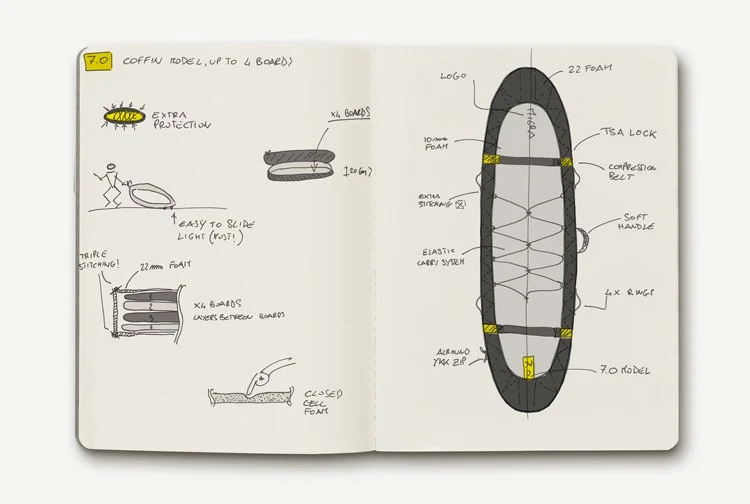 7.0
COFFIN MODEL, UP TO 4 BOARDS
EXTRA
PROTECTION
X4 BOARDS
EASY TO SLIDE
LIGHT (MUST!)
TRIPLE
STITCHING!
22mm FOAM
1
2
3
4
X4 BOARDS
LAYERS BETWEEN BOARDS
CLOSED
CELL
FOAM
LOGO
22 FOAM
10mm
FOAM
TSA LOCK
COMPRESSION
BELT
EXTRA
STITCHING
SOFT
HANDLE
ELASTIC
CARRY SYSTEM
4X RINGS
ALROUND
YKK ZIP
7.0 MODEL